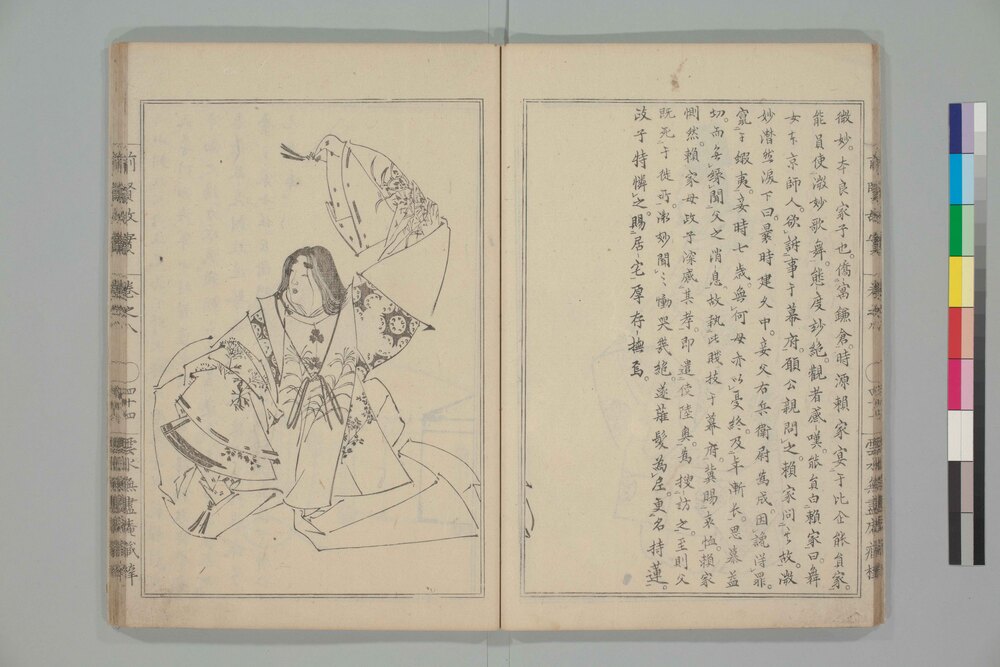 微妙。本良家子也。僑寓鎌倉。時源賴家宴于比企能員家。
能員使微妙歌舞。態度妙絕。觀者感嘆。能員白賴家曰。舞
女本京師人。欲訴事于幕府。願公親問之。賴家問其故。微
妙潸然淚下曰。曩時建久中。妾父右兵衛尉為成。因讒得罪。
竄于蝦夷。妾時七歲。無何母亦以憂終。及年漸長。思慕益
切。而無緣聞父之消息。故執此賤技于幕府。冀賜哀恤。賴家
惻然。賴家母政子深感其孝。即遣使陸奧。為搜訪之。至則父
既死于徙所。微妙聞之。慟哭幾絕。遂薙髮為尼。更名持蓮。
政子特憐之。賜居宅厚存撫焉。
前賢故實
卷之八
雲水無盡庵藏